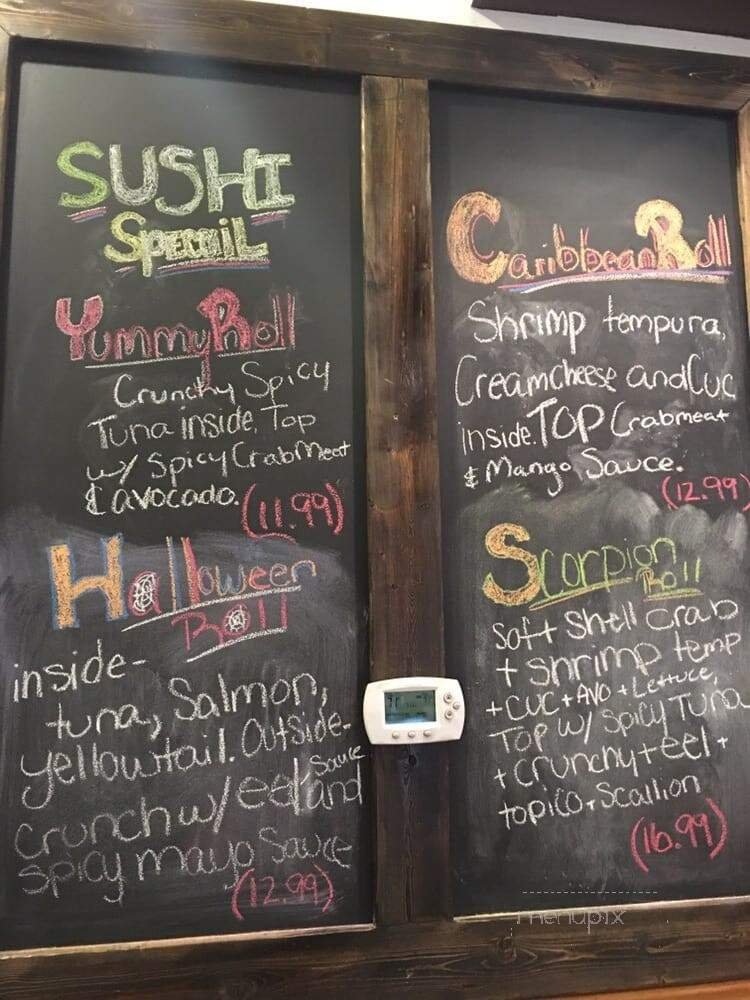 SUSHI
SpecaiL
YummyRoll
Crunchy Spicy
Tuna inside. Top
w/ Spicy CrabMeat
& avocado. (11.99)
Halloween
Roll
inside-
tuna, Salmon,
yellowtail. Outside-
crunch w/ eel Sauce and
spicy mayo Sauce
(12.99)
Caribbean Roll
Shrimp tempura,
Creamcheese and Cuc
inside. TOP Crabmeat
& Mango Sauce.
(12.99)
Scorpion
Roll
Soft Shell Crab
+ shrimp temp
+ cuc + Avo + Lettuce,
TOP w/ Spicy Tuna
+ crunchy + eel +
topico + Scallion
(16.99)
menupix